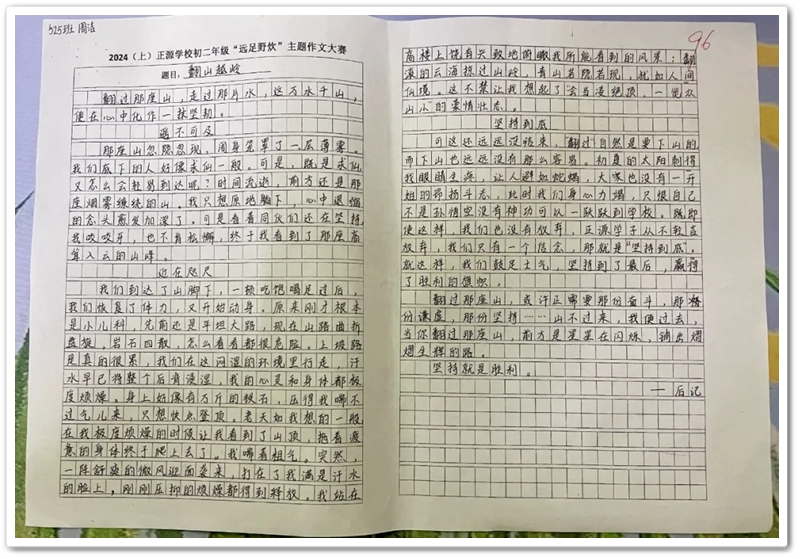 525班 周洁
2024（上）正源学校初二年级“远足野炊”主题作文大赛
题目：翻山越岭
翻过那座山，走过那片水，这万水千山，
便在心中化作一抹坚韧。
遥不可及
那座山忽隐忽现，周身笼罩了一层薄雾。
我们底下的人好像求仙一般。可是，既是求仙
又怎么会轻易到达呢？时间流逝，前方还是那
座烟雾缭绕的山。我只想原地躺下，心中退缩
的念头愈发加深了。可是看着同伙们还在坚持
我咬咬牙，也不肯松懈，终于我看到了那座高
耸入云的山峰。
近在咫尺
我们到达了山脚下，一顿吃饱喝足过后，
我们恢复了体力，又开始动身。原来刚才根本
是小儿科，先前还是平坦大路，现在山路曲折
盘旋。岩石四散，怎么看看都很危险。上坡路
是真的很累，我们在这闷湿的环境里行走，汗
水早已将整个后背浸湿，我的心灵和身体都极
度烦燥。身上好像有万斤的铁石，压得我喘不
过气儿来，只想快点登顶，老天如我想的一般
在我极度烦燥的时候让我看到了山顶，拖着疲
惫的身体终于爬上去了。我喘着粗气。突然，
一阵舒爽的微风迎面袭来，打在了我满是汗水
的脸上，刚刚压抑的烦燥都得到释放。我站在
96
高楼上饶有兴致地俯瞰我所能看到的风景：翻
滚的云海掠过山岭，青山若隐若现，犹如人间
仙境。这不禁让我想起了“会当凌绝顶，一览众
山小”的豪情壮志。
坚持到底
可这还远远没结束，翻过自然是要下山的
而下山也远远没有那么容易。初夏的太阳刺得
我眼睛生疼，让人避如蛇蝎，大家也没有一开
始的昂扬斗志，此时我们身心力竭，只恨自己
不是孙悟空没有神功可以一跃跃到学校。既即
使这样，我们也没有放弃，正源学子从不轻言
放弃，我们只有一个信念，那就是“坚持到底”。
就这样，我们鼓足士气，坚持到了最后，赢得
了胜利的旗帜。
翻过那座山，或许正需要那份奋斗，那份
份谦虚，那份坚持……山不过来，我便过去，
当你翻过那座山，前方是星星在闪烁，铺出熠
熠生辉的路。
坚持就是胜利。
— 后记